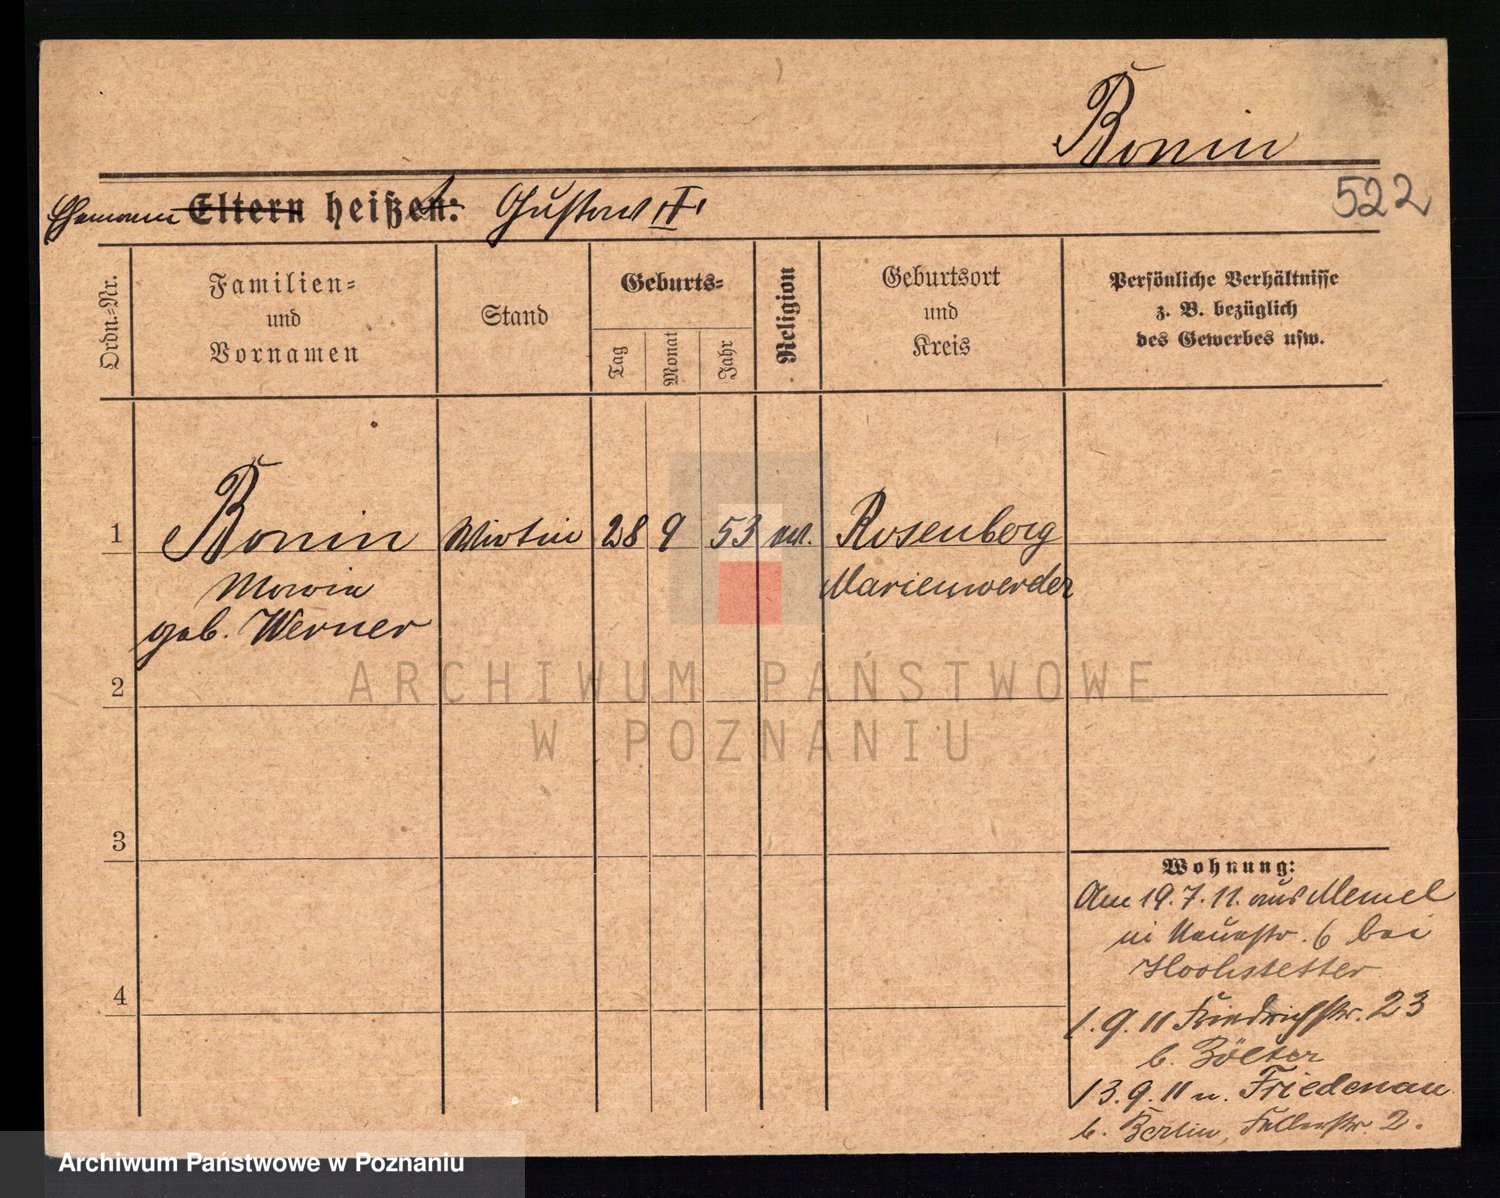 Bonin
522
Ehemann Eltern heißen: Gustav, †,
Ordn.-Nr.
Familien-
und
Vornamen
Stand
Geburts-
Tag
Monat
Jahr
Religion
Geburtsort
und
Kreis
Persönliche Verhältnisse
z. B. bezüglich
des Gewerbes usw.
1 Bonin Wirtin 28 9 53 ev. Rosenberg
Maria Marienwerder
geb. Werner
2
3
4
Wohnung:
Am 19.7.11. aus Memel
in Neuestr. 6 bei
Hochstetter
1.9.11 Friedrichstr. 23
b. Zölter
13.9.11 n. Friedenau
b. Berlin, 2.
ARCHIWUM PAŃSTWOWE
W POZNANIU
Archiwum Państwowe w Poznaniu